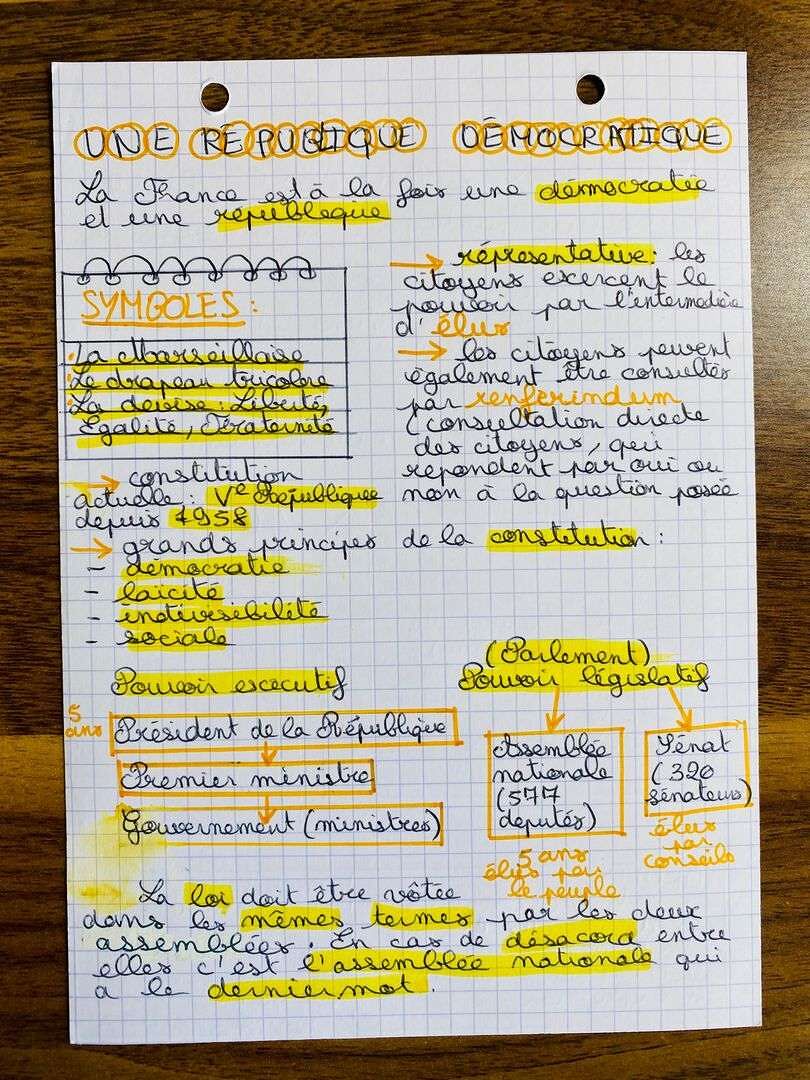 UNE RÉPUBLIQUE DÉMOCRATIQUE
La France est à la fois une démocratie
et une république
SYMBOLES :
La Marseillaise
Le drapeau tricolore
La devise : Liberté,
Égalité, Fraternité
→ constitution
actuelle : Ve République
depuis 1958
→ représentative : les
citoyens exercent le
pouvoir par l'intermédiaire
d'élus
→ les citoyens peuvent
également être consultés
par renferindum
(consultation directe
des citoyens, qui
repondent par oui ou
non à la question posée
→ grands principes de la constitution :
- démocratie
- laïcité
- indivisibilité
- sociale
Pouvoir executif
5 ans
Président de la République
Premier ministre
Gouvernement (ministres)
(Parlement)
Pouvoir législatif
Assemblée
nationale
(577
députés)
5 ans
élus par
le peuple
Sénat
(320
sénateurs)
élus
par
conseils
La loi doit être vôtée
dans les mêmes termes par les deux
assemblées. En cas de désacord entre
elles c'est l'assemblée nationale qui
a le dernier mot.